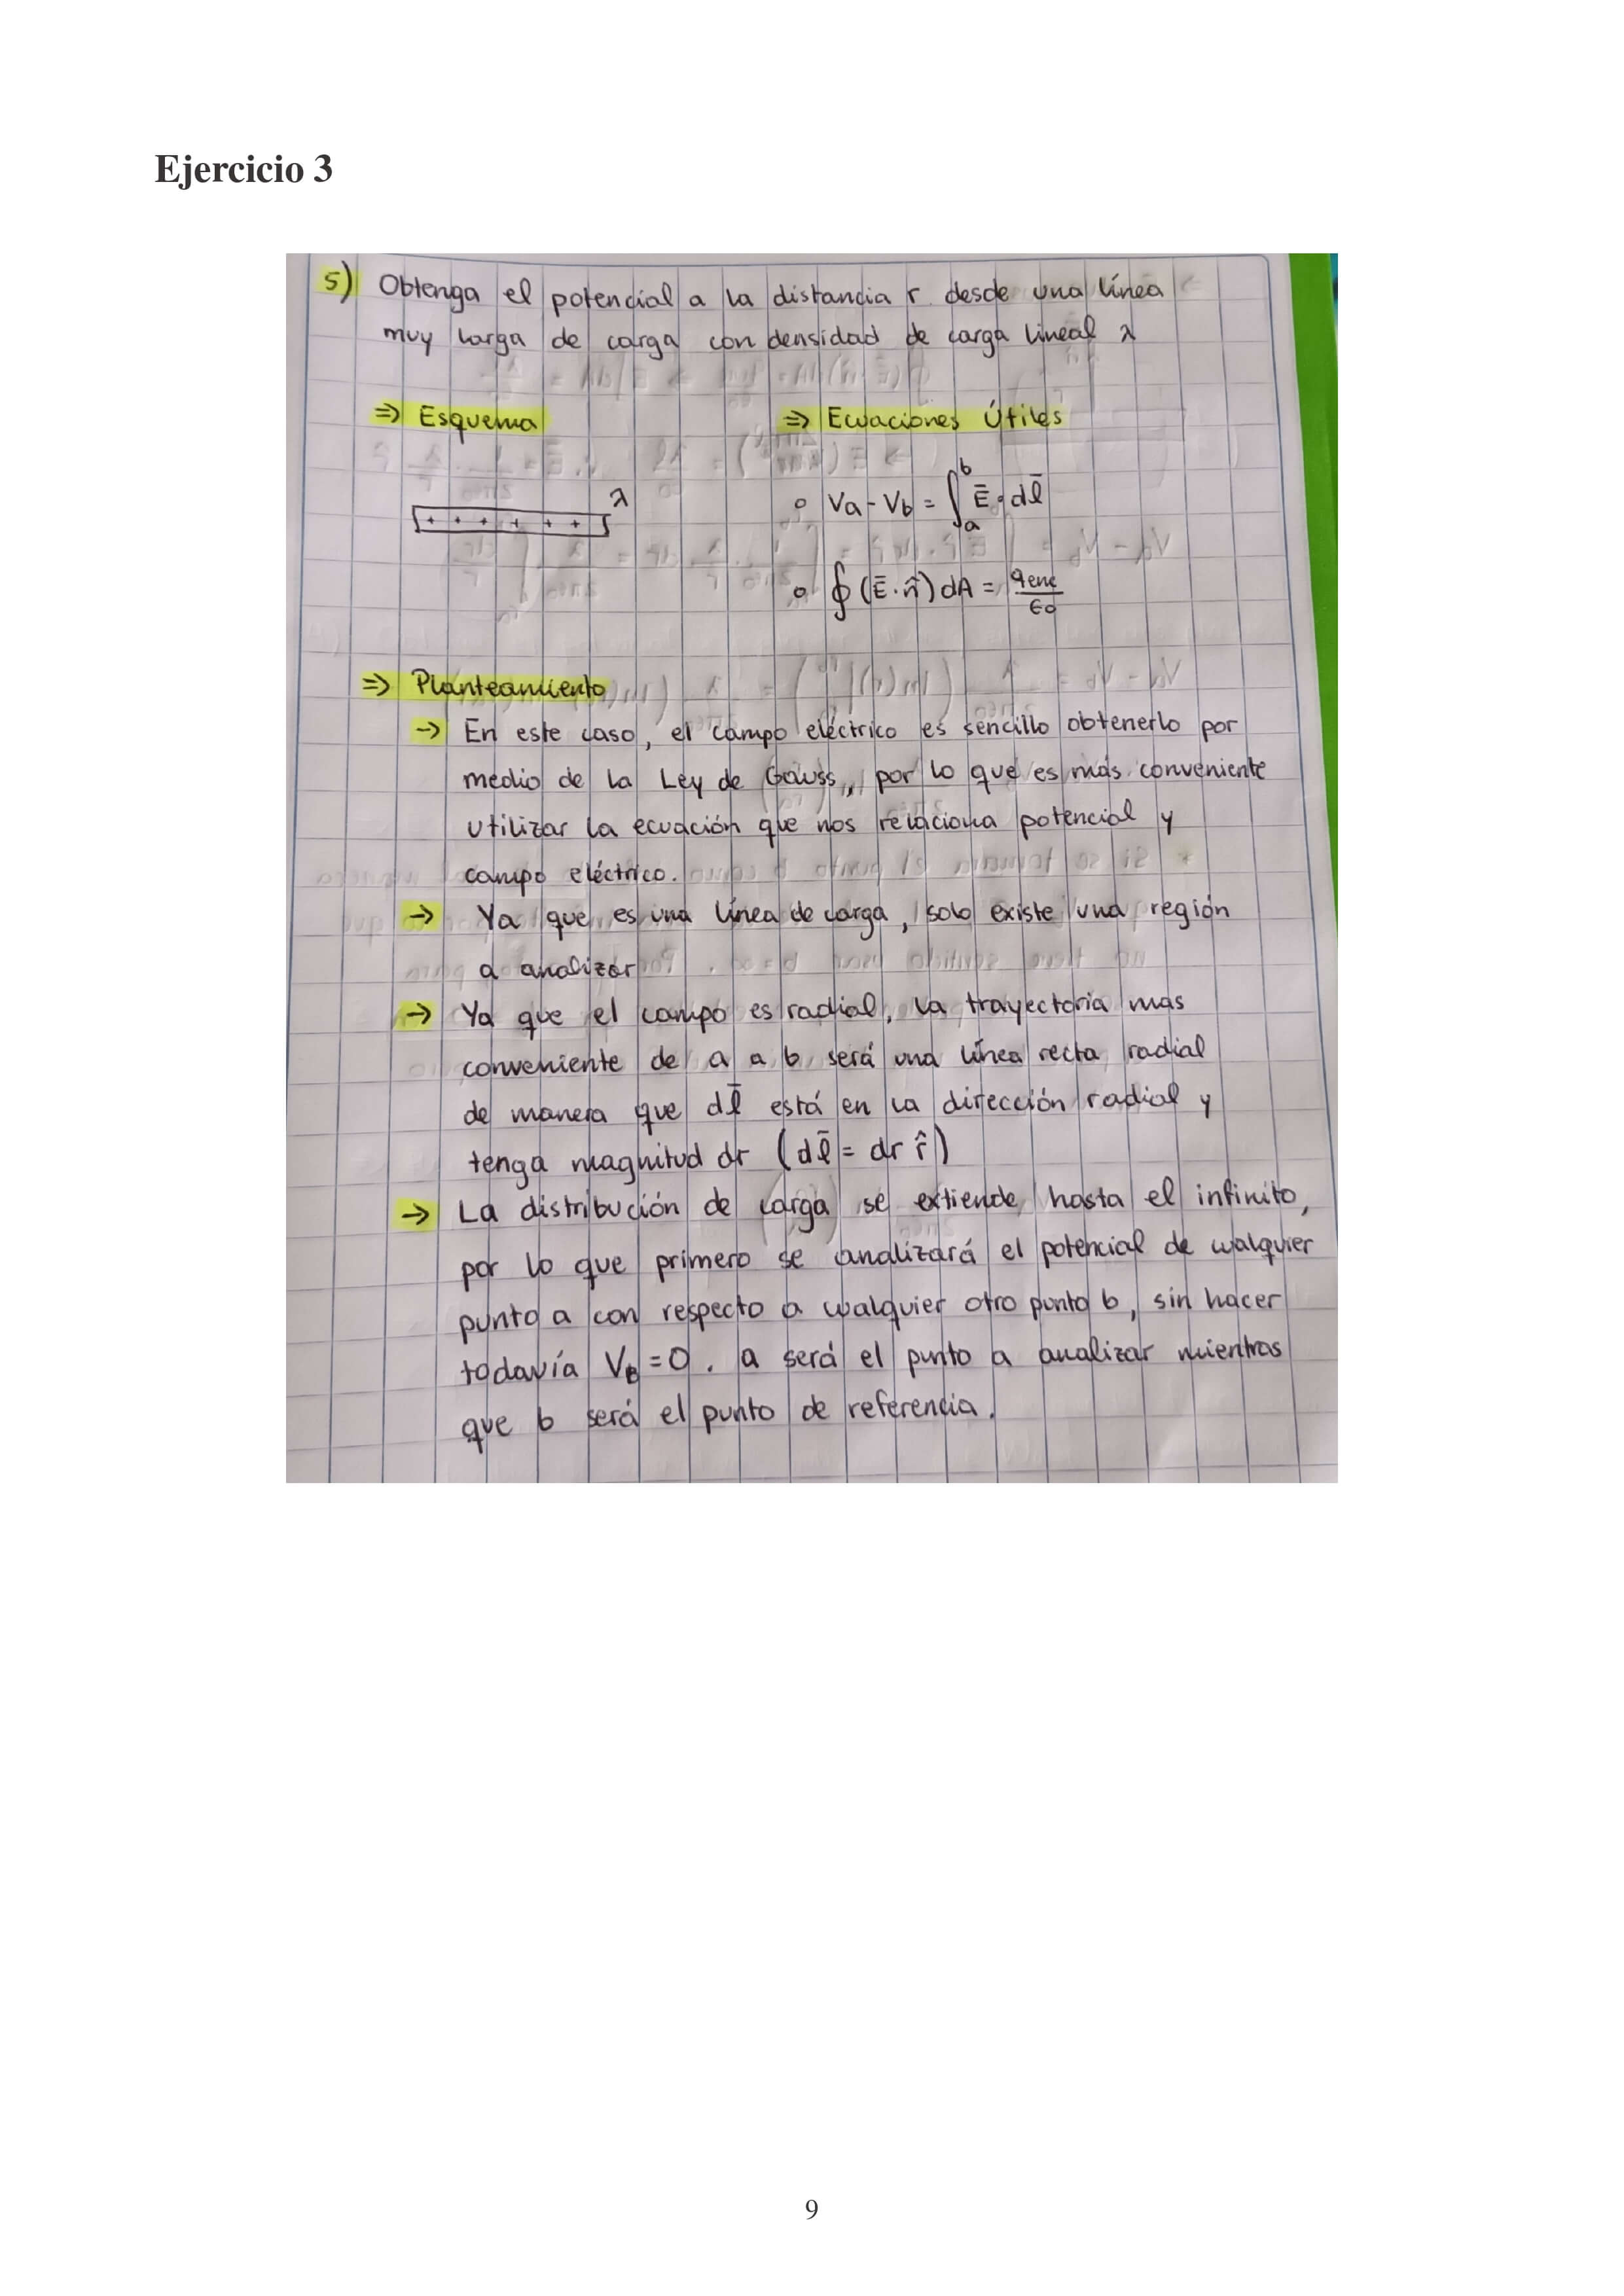 Ejercicio 3
5) Obtenga el potencial a la distancia r desde una línea
muy larga de carga con densidad de carga lineal λ
⇒ Esquema
⇒ Ecuaciones Útiles
λ
+ + + + + +
∘ Va - Vb = ∫_a^b Ē · dl̄
∘ ∮ (Ē · n̂) dA = qenc/ϵo
⇒ Planteamiento
→ En este caso, el campo eléctrico es sencillo obtenerlo por
medio de la Ley de Gauss, por lo que es más conveniente
utilizar la ecuación que nos relaciona potencial y
campo eléctrico.
→ Ya que es una línea de carga, solo existe una región
a analizar
→ Ya que el campo es radial, la trayectoria más
conveniente de a a b será una línea recta radial
de manera que dl̄ está en la dirección radial y
tenga magnitud dr (dl̄ = dr r̂)
→ La distribución de carga se extiende hasta el infinito,
por lo que primero se analizará el potencial de cualquier
punto a con respecto a cualquier otro punto b, sin hacer
todavía VB = 0. a será el punto a analizar mientras
que b será el punto de referencia.
9